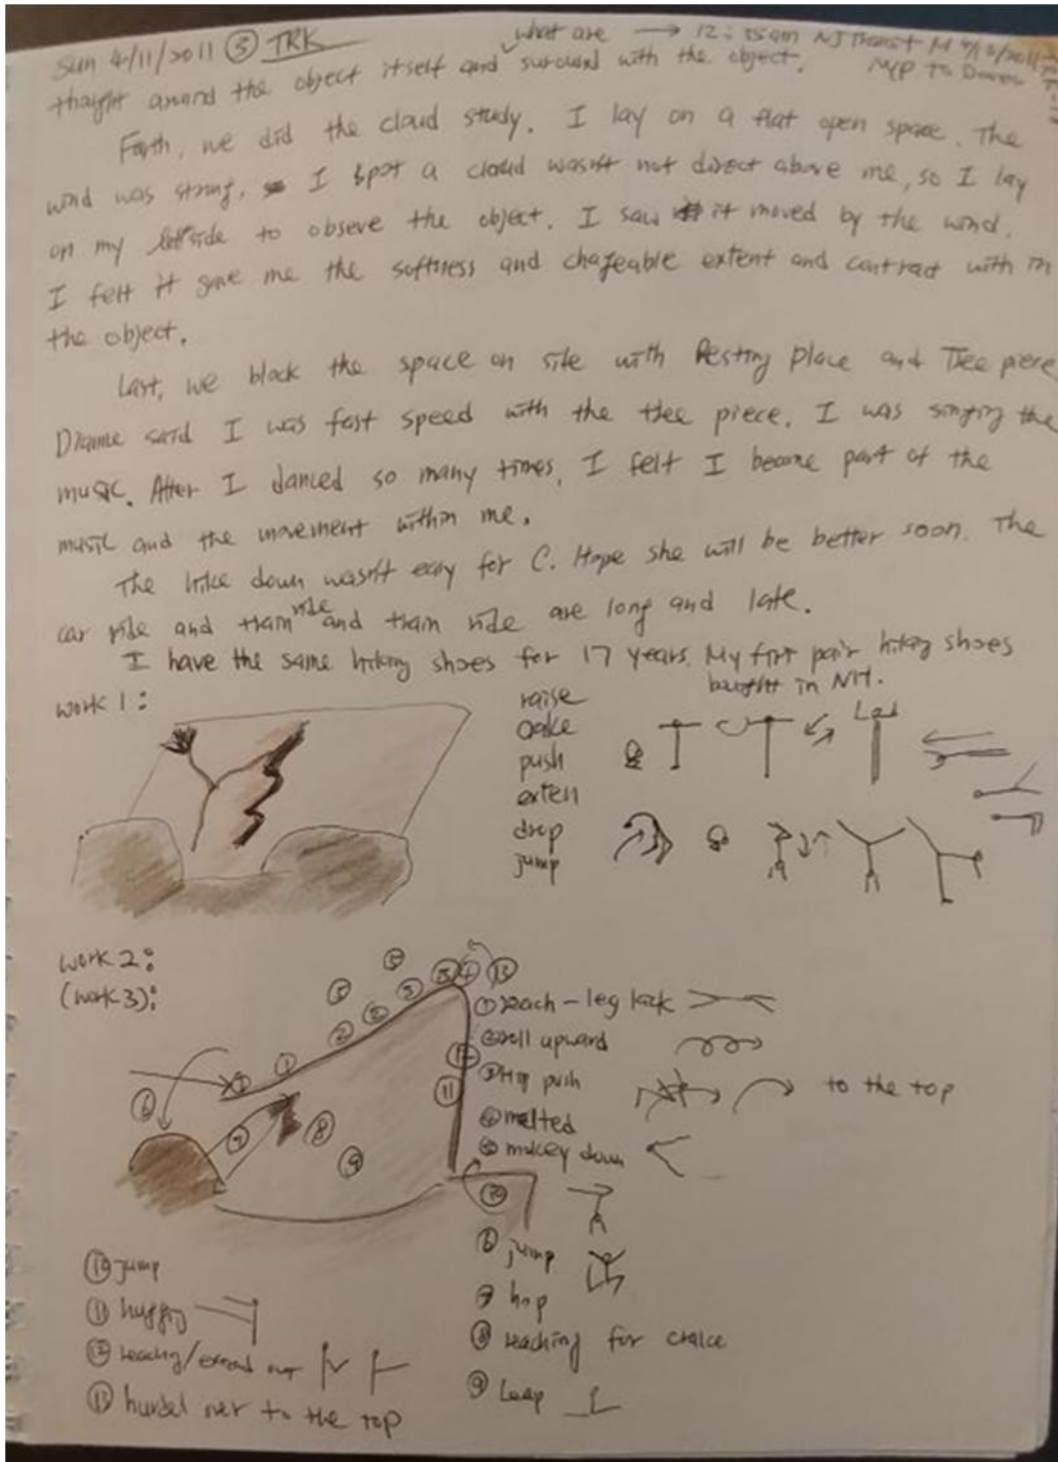 Sun 4/11/2011 ③ TRK
what are → 12:35am NJ Transit
thaight around the object itself and suround with the object.
Forth, we did the cloud study. I lay on a flat open space. The
wind was strong. I spot a cloud wasn't not direct above me, so I lay
on my left side to observe the object. I saw it moved by the wind.
I felt it gave me the softness and chageable extent and contract with in
the object.
Last, we block the space on site with Resting Place and Tree piece
Dianne said I was fast speed with the tree piece. I was singing the
music. After I danced so many times, I felt I became part of the
music and the movement within me.
The hike down wasn't easy for C. Hope she will be better soon. The
car ride and train ride and train ride are long and late.
I have the same hiking shoes for 17 years. My first pair hiking shoes
bought in NH.
work 1:
raise
push
exten
drop
jump
work 2:
(work 3):
① reach - leg kick
② roll upward
③ Hop push
to the top
④ melted
⑤ down
⑥ jump
⑦ hop
⑧ reaching for
⑨ Leap
⑩ jump
⑪ huggig
⑫ reaching/extend over
⑬ hurdel over to the top